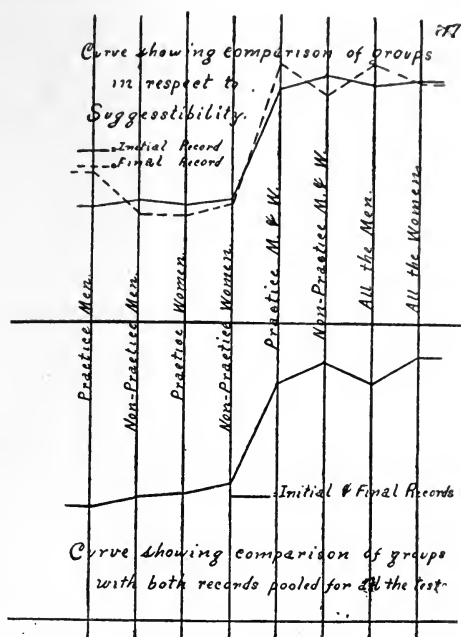 Curve showing comparison of groups
in respect to
Suggesstibility.
Initial Record
Final Record
Practice Men.
Non-Practice Men.
Practice Women.
Non-Practice Women.
Practice M. & W.
Non-Practice M. & W.
All the Men.
All the Women.
Initial & Final Records
Curve showing comparison of groups
with both records pooled for all the test